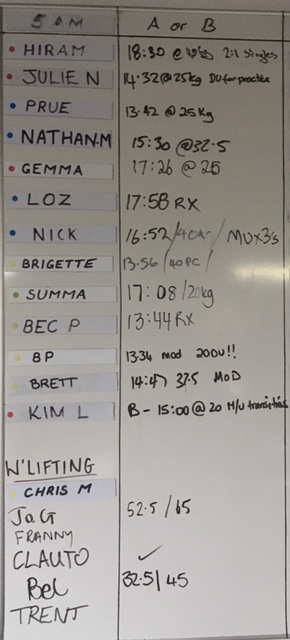 5 AM A or B
HIRAM 18:30 @ 2:1 Singles
JULIE N 14.32@25kg DU for practice
PRUE 13.42 @ 25Kg
NATHAN.M 15:30 @32.5
GEMMA 17:26 @ 25
LOZ 17:58 RX
NICK 16:52/40KG/ MUx3's
BRIGETTE 13.56 /40PC/
SUMMA 17:08/20kg
BEC P 13:44 RX
BP 13:34 mod 20DU!!
BRETT 14:47 37.5 MOD
KIM L B - 15:00 @ 20 M/U transitions
W'LIFTING
CHRIS M
JaG 52.5/65
FRANNY
CLAUTO ✓
Bel 32.5/45
TRENT